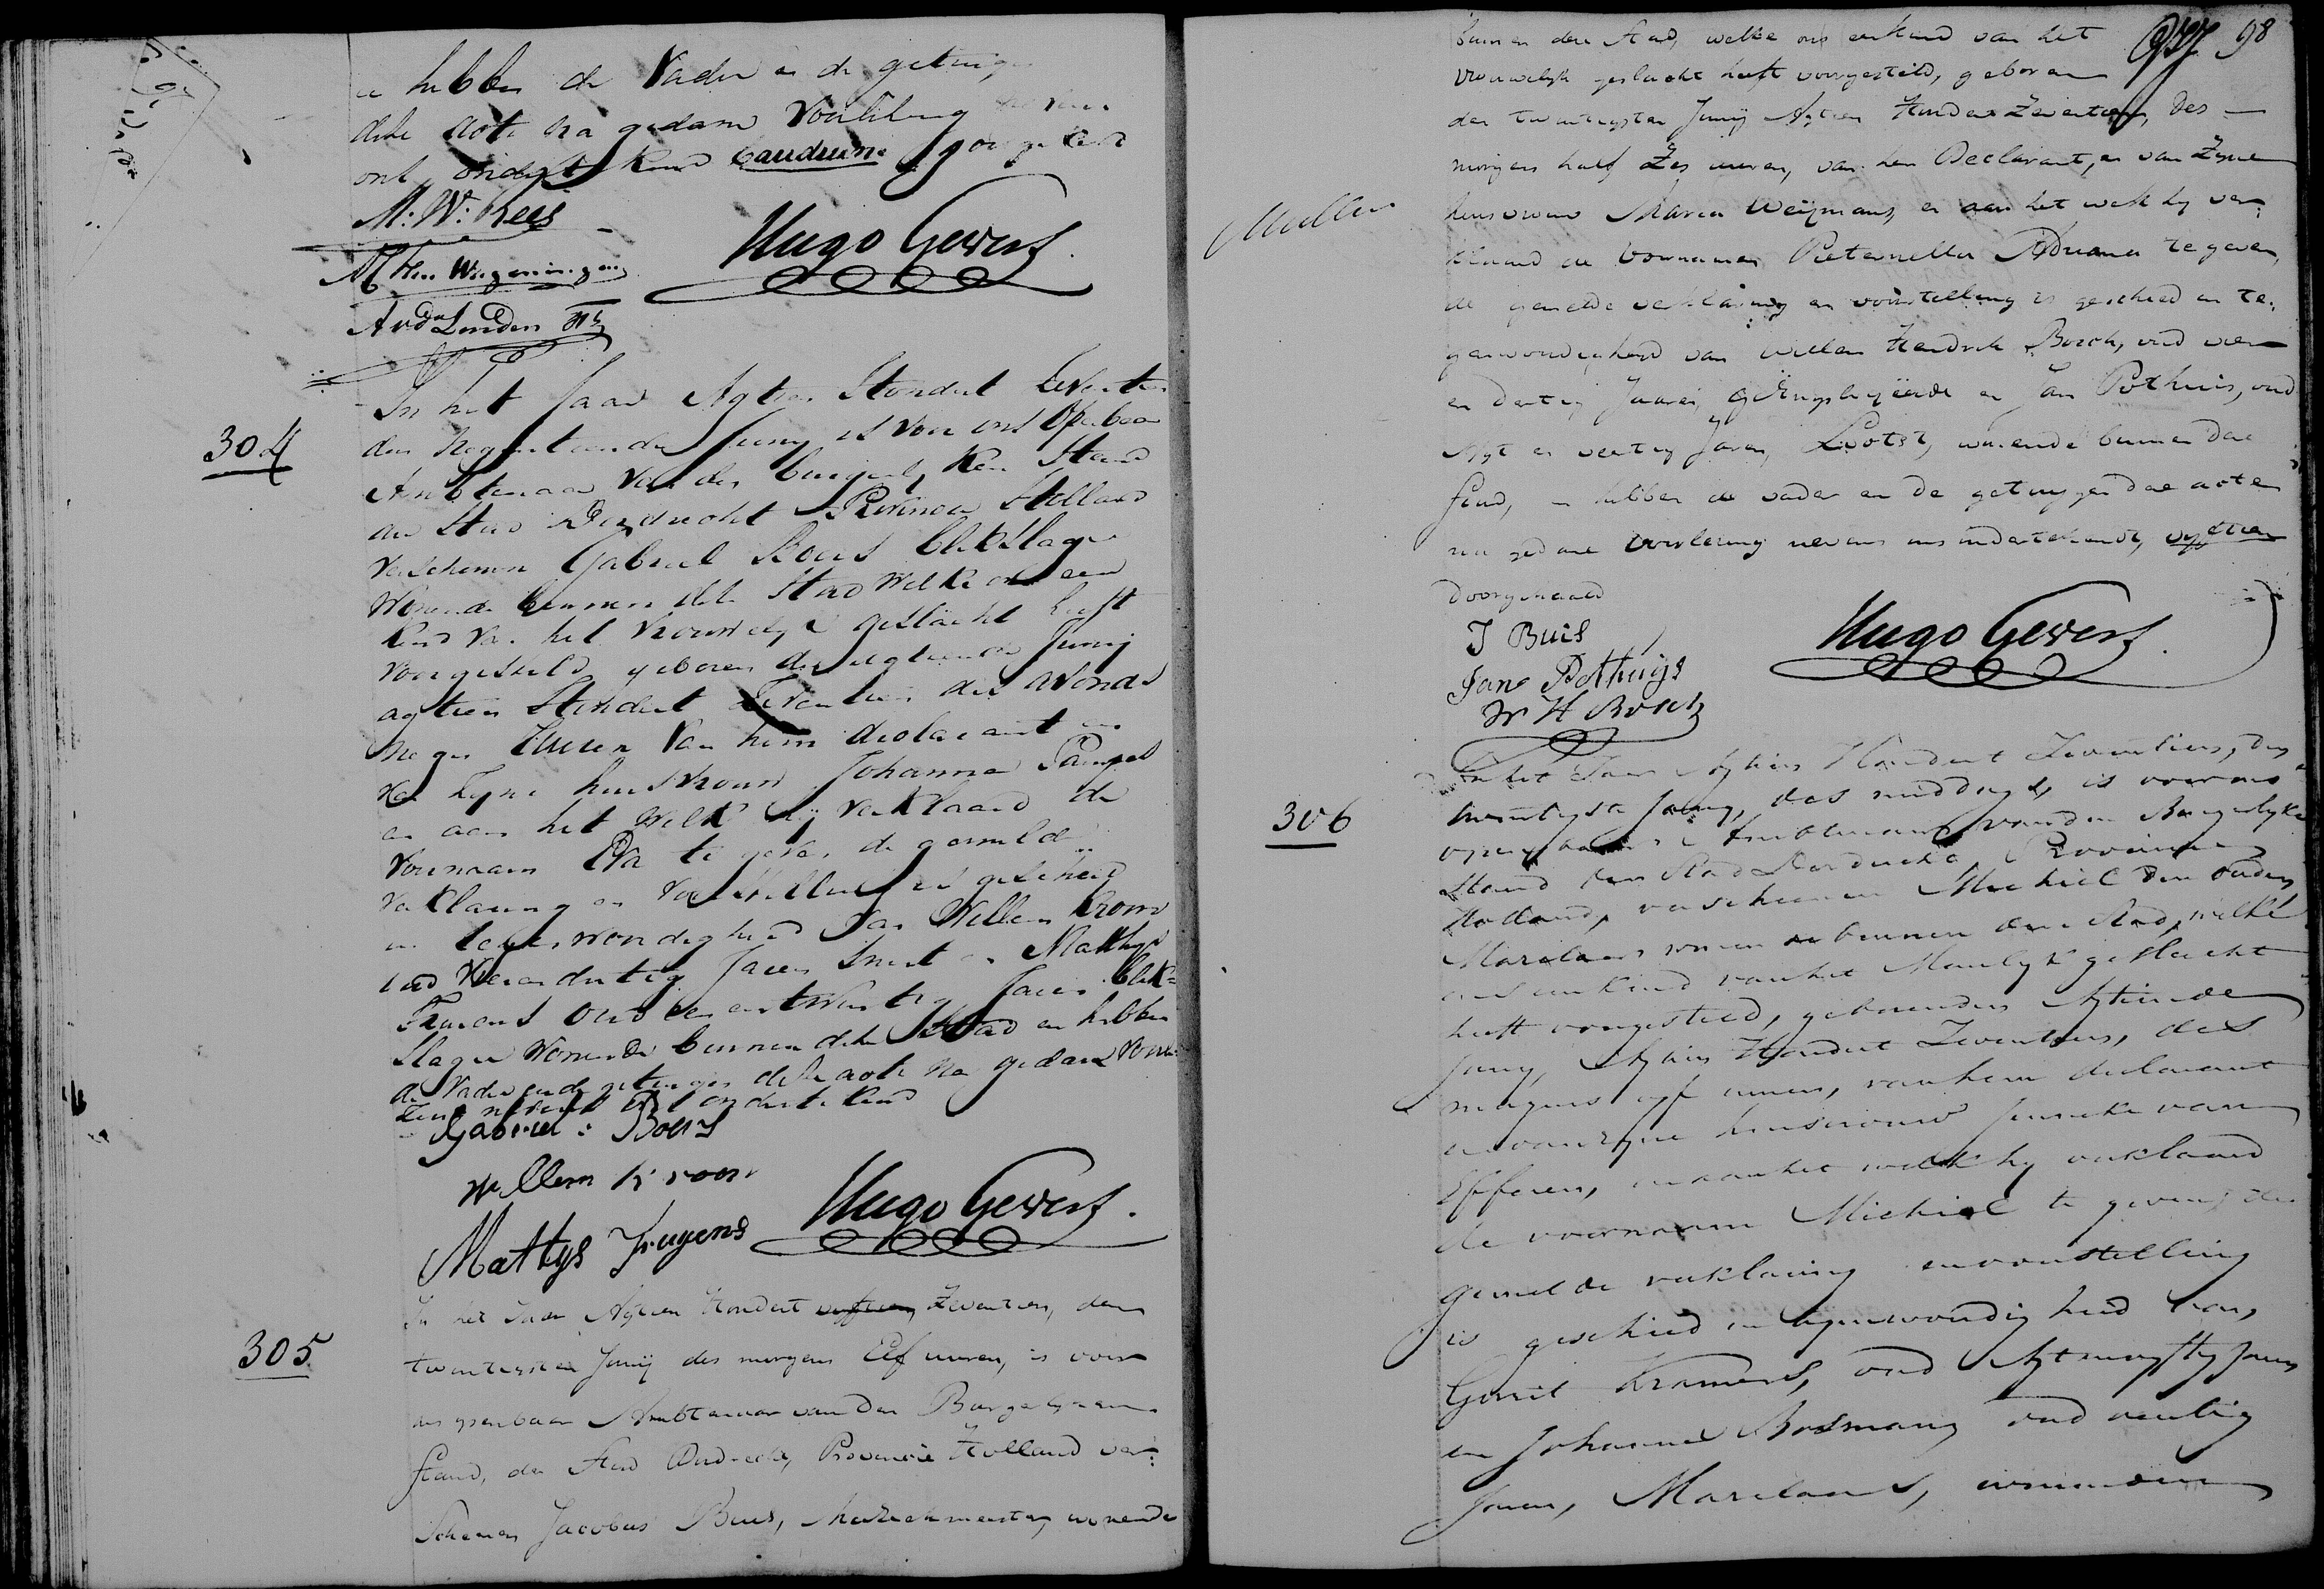 en hebben de Vader en de getuige
deze acte na gedane Voorlezing nevens
ons ondertekend baudum doorgehaald
M: W: Kees
M: Van Wageningen
A v d Linden Hz
Hugo Gevers
304
In het Jaar Agtien Hondert Zeventien
den Negentienden Juny is voor ons Openbaar
Ambtenaar van den burgerlyken Stand
der Stad Dordrecht Provincie Holland
verschenen Gabriel Boers blikslager
wonende binnen deze Stad welke ons een
kind van het vrouwelyk geslacht heeft
voorgesteld geboren den agtienden Juny
agtien Hondert Zeventien des avonds
negen Uuren van hem declarant en
van Zyne huisvrouw Johanna Pampel
en aan het welk hy verklaard de
voornaam Eva te geven de gemelde
verklaring en voorstelling is geschied
in tegenwoordigheid van Willem Kroon
oud Vierendertig Jaren Smit en Matthys
Trugens oud een entwintig Jaren blik=
slager wonende binnen deze Stad en hebben
de Vader en de getuigen deze acte na gedane Voor
lezing nevens ons ondertekend
Gabriel: Boers
Willem Kroon
Mattys Trugens
Hugo Gevers.
305
In het Jaar Agtien Hondert vyftien Zeventien, den
twintigsten Junij des morgens Elf uuren, is voor
ons openbaar Ambtenaar van den Burgerlyken
Stand, der Stad Dordrecht, Provincie Holland ver:
schenen Jacobus Buis, Muziekmeester, wonende
98
binnen deze Stad, welke ons een kind van het
vrouwelyk geslacht heeft voorgesteld, geboren
den twintigsten Junij Agtien Hondert Zeventien, des
morgens half Zes uuren, van hem Declarant, en van Zyne
huisvrouw Maria Weijmans, en aan het welk hy ver:
klaard de voornamen Pieternella Adriana te geven,
de gemelde verklaring en voorstelling is geschied in te:
genwoordigheid van Willem Hendrik Bosch, oud vier
en dertig Jaaren, Geëmployeerde en Jan Pothuis, oud
Agt en veertig Jaren, Loots, wonende binnen deze
Stad, en hebben de vader en de getuygen deze acte
na gedane voorlezing nevens ons ondertekend, vyftien
doorgehaald
J Buis
Jan Pothuijs
W H Bosch
Hugo Gevers.
306
In het Jaar Agtien Hondert Zeventien, den
twintigste Juny, des middags, is voor ons
openbaar Ambtenaar van den Burgerlyke
Stand der Stad Dordrecht, Provincie
Holland, verschenen Michiel den Ouden
Marelaar wonende binnen deze Stad, welke
ons een kind van het Manlyk geslacht
heeft voorgesteld, geboren den Agtiende
Juny, Agtien Hondert Zeventien, des
morgens elf uuren, van hem declarant
en van Zyne huisvrouw Janneke van
Efferen, en aan het welk hy verklaard
de voornaam Michiel te geven, de
gemelde verklaring en voorstelling
is geschied in tegenwoordigheid van,
Gerrit Kramers, oud Agt en vyftig Jaren
en Johannes Bosmans oud veertig
Jaren, Marelaars, wonende